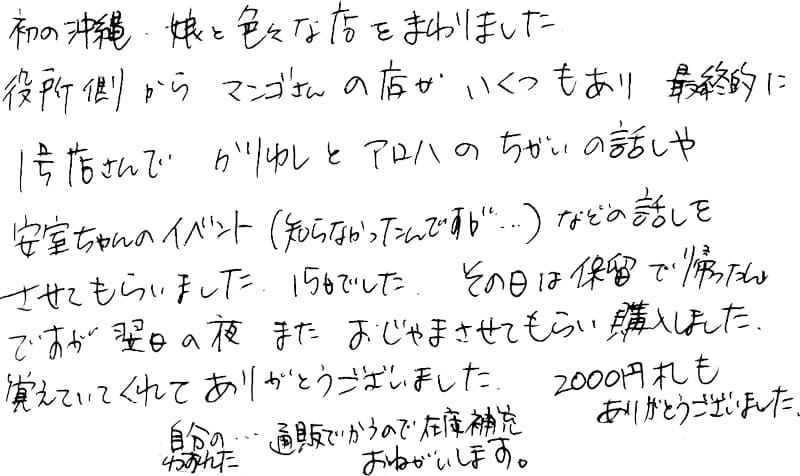 初の沖縄、娘と色々な店をまわりました
役所側から マンゴさんの店が いくつもあり 最終的に
1号店さんで かりゆしとアロハのちがいの話しや
安室ちゃんのイベント(知らなかったんですが…)などの話しを
させてもらいました. 15日でした. その日は保留で帰ったん
ですが 翌日の夜 また おじゃまさせてもらい 購入しました.
覚えていてくれてありがとうございました. 2000円札も
ありがとうございました.
自分の… 通販でかうので在庫補充
わすれた おねがいします。